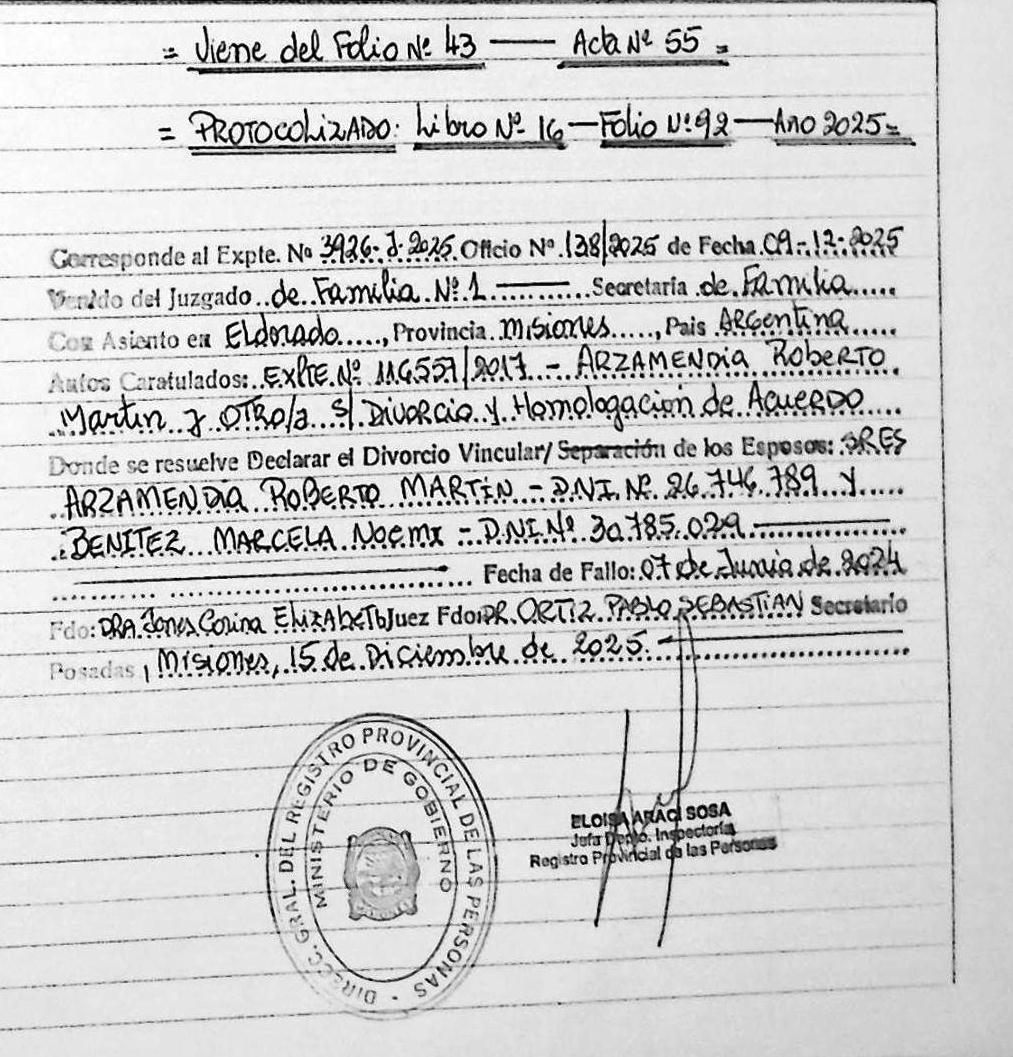 = Viene del Folio Nº 43 — Acta Nº 55 =
= PROTOCOLIZADO: Libro Nº 16 — Folio Nº 92 — Año 2025 =
Corresponde al Expte. Nº 3926-J-2025 Oficio Nº 138/2025 de Fecha 09-12-2025
Venido del Juzgado de Familia Nº 1 Secretaria de Familia
Con Asiento en Eldorado, Provincia Misiones, Pais ARGentina
Autos Caratulados: EXPTE. Nº 116557/2017 - ARZAMENDIA ROBERTO
Martin y OTRO/a s/ Divorcio y Homologación de Acuerdo
Donde se resuelve Declarar el Divorcio Vincular/ Separación de los Esposos: SRES
ARZAMENDIA ROBERTO MARTÍN - D.N.I. Nº 26.746.789 y
BENITEZ MARCELA Noemi - D.N.I. Nº 30.785.029
Fecha de Fallo: 07 de Junio de 2024
Fdo: DRA. Jones Corina ELIZABETh Juez Fdo: DR. ORTIZ PABLO SEBASTIAN Secretario
Posadas, Misiones, 15 de Diciembre de 2025.
DIRECC. GRAL. DEL REGISTRO PROVINCIAL DE LAS PERSONAS
MINISTERIO DE GOBIERNO
ELOISA ARACI SOSA
Jefa Depto. Inspectoría
Registro Provincial de las Personas